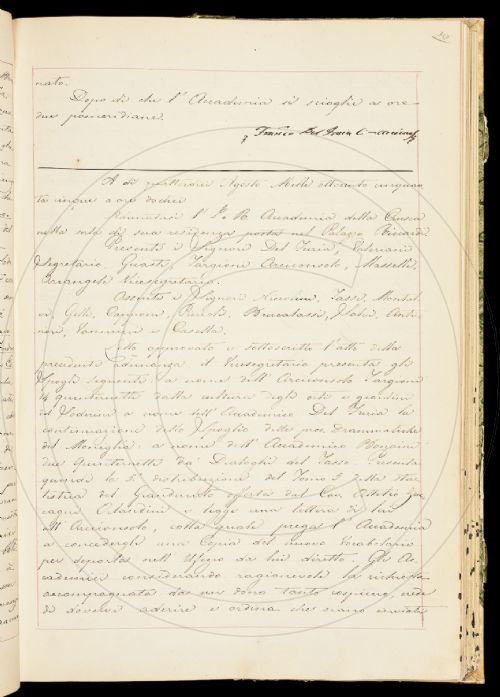 nato.
Dopo di che l'Accademia si scioglie a ore
due pomeridiane.
A dì quattordici Agosto Mille ottocento cinquan
ta cinque a ore dodici
Adunatasi l'I. e R. Accademia della Crusca
nella sala di sua residenza posta nel Palazzo Riccardi
Presenti i Signori Del Furia,
Segretario, Guasti, Targioni Arciconsolo, Masselli,
Arcangeli Vicesegretario.
Assenti i Signori Niccolini, Tassi, Montal
vi, Gelli, Capponi, Brucalassi,
Vannucci e Casella.
Letto approvato e sottoscritto l'atto della
precedente adunanza il Vicesegretario presenta gli
spogli seguenti: a nome dell'Arciconsolo Targioni
14 quinternetti della cultura degli orti e giardini
del Soderini a nome dell'Accademico Del Furia la
continuazione dello spoglio delle poesie Drammatiche
del Moneglia: a nome dell'Accademico
due Quinternetti da' Dialoghi del Tasso. Presenta
quindi la 5ª distribuzione del Tomo 3 della sta-
tistica del Granducato offerta dal Cav. Attilio Zuc
cagni Orlandini e legge una lettera di lui
all'Arciconsolo, colla quale prega l'Accademia
a concedergli una Copia del nuovo Vocabolario
per deporla nell'Ufizio da lui diretto. Gli Ac-
cademici considerando ragionevole la richiesta
accompagnata da un dono tanto cospicuo, crede
di dovervi aderire e ordina che siano inviati